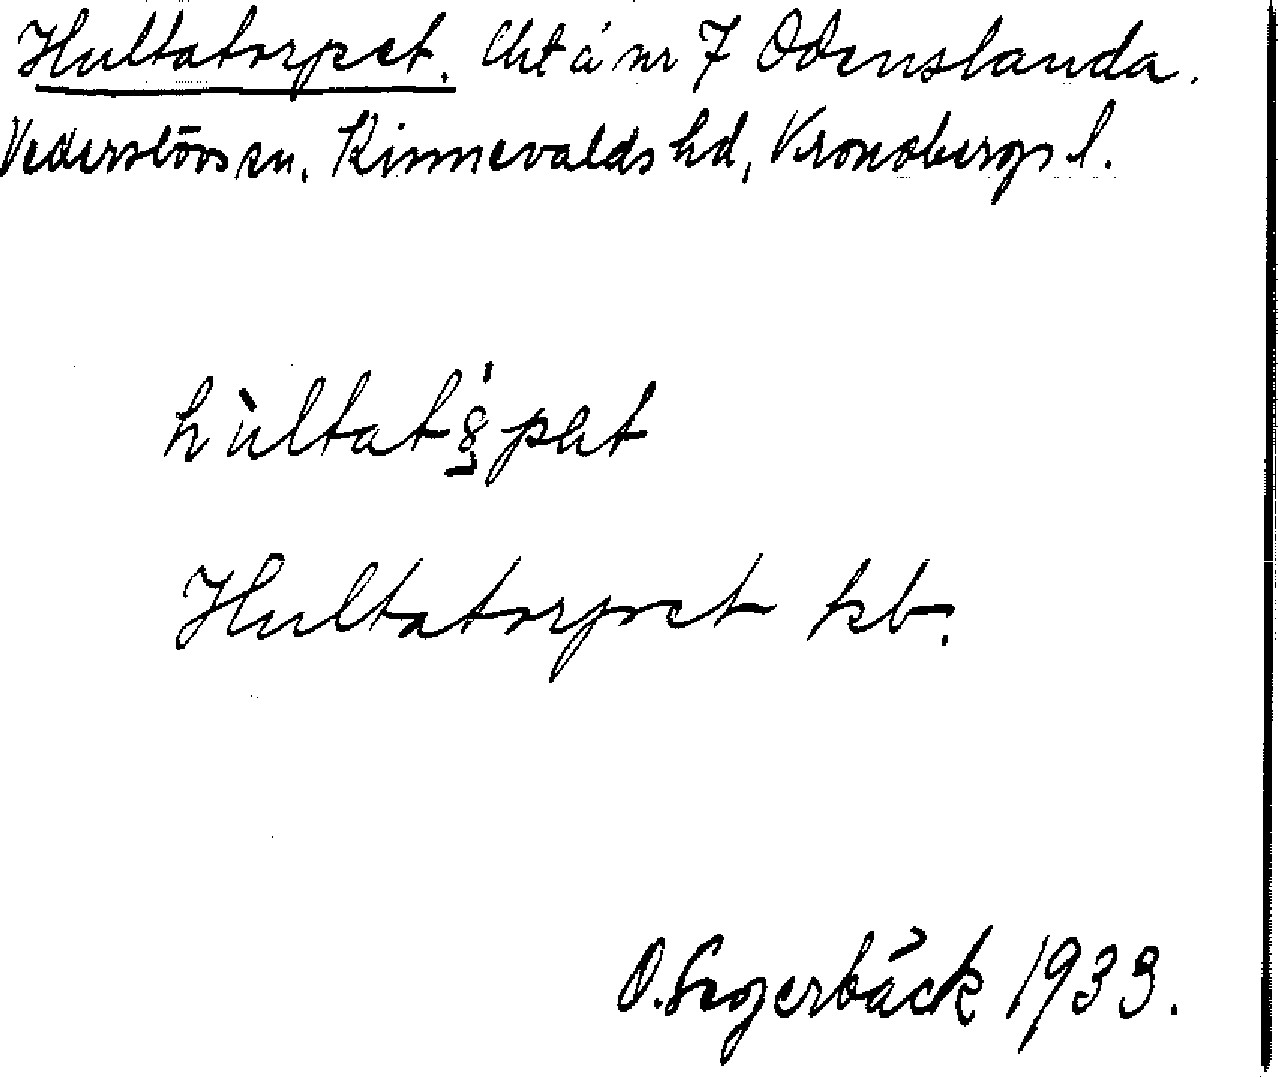 Hultatorpet. Cht å nr 7 Odenslanda.
Vederslövs sn. Kinnevalds hd, Kronobergs l.
Hultatorpet kb.
O. Segerbäck 1933.